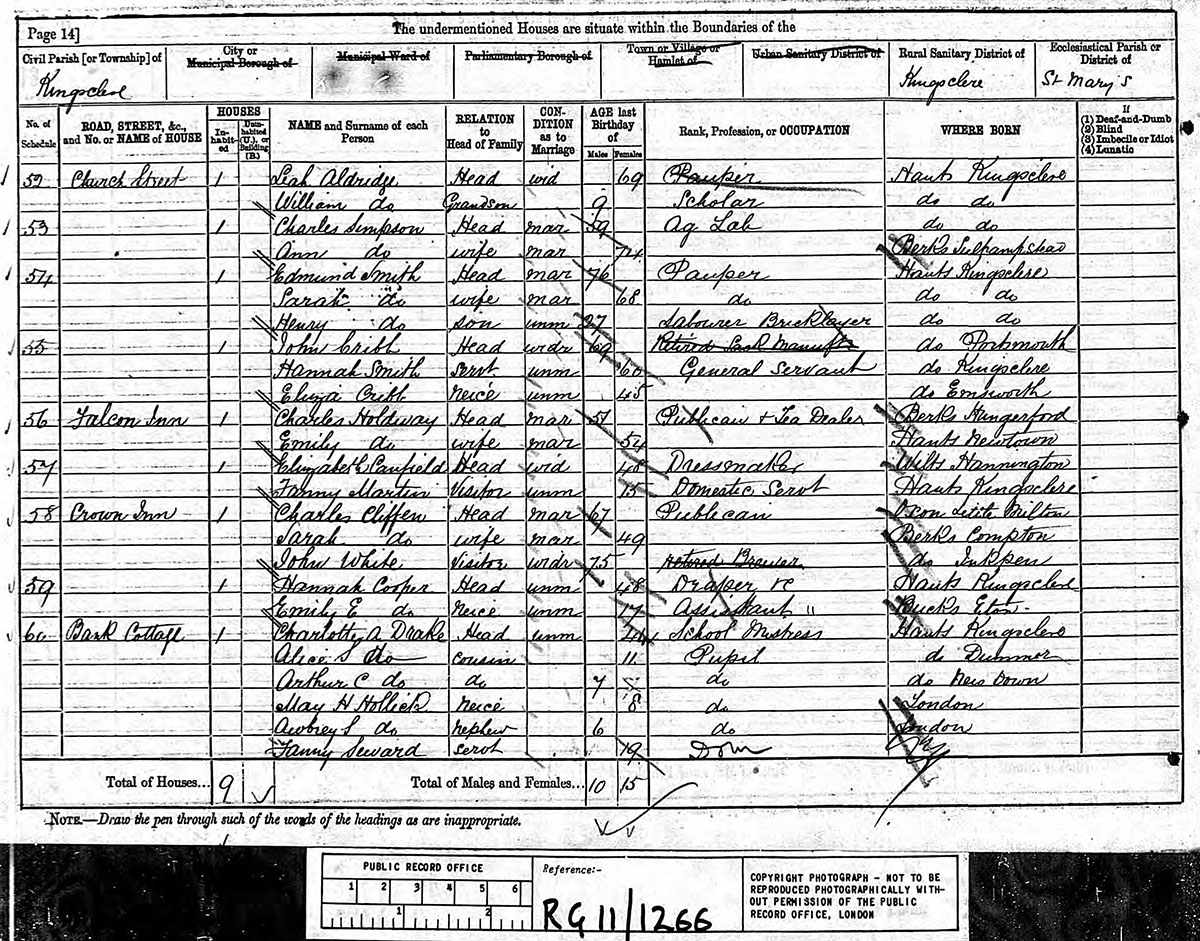 Page 14]
The undermentioned Houses are situate within the Boundaries of the
Civil Parish [or Township] of
City or Municipal Borough of
Municipal Ward of
Parliamentary Borough of
Town or Village or Hamlet of
Urban Sanitary District of
Rural Sanitary District of
Ecclesiastical Parish or District of
Kingsclere Kingsclere St Mary's
No. of Schedule
ROAD, STREET, &c., and No. or NAME of HOUSE
HOUSES
Inhabited
Uninhabited (U.), or Building (B.)
NAME and Surname of each Person
RELATION to Head of Family
CONDITION as to Marriage
AGE last Birthday of
Males Females
Rank, Profession, or OCCUPATION
WHERE BORN
If
(1) Deaf-and-Dumb
(2) Blind
(3) Imbecile or Idiot
(4) Lunatic
52 Church Street 1 Leah Aldridge Head wid 69 Pauper Hants Kingsclere
William do Grandson 9 Scholar do do
53 1 Charles Simpson Head mar 59 Ag Lab do do
Ann do wife mar 74 Berks
54 1 Edmund Smith Head mar 76 Pauper Hants Kingsclere
Sarah do wife mar 68 do do do
Henry do son unm 27 Labourer Bricklayer do do
55 1 John Cribb Head widr 69 Retired do Portsmouth
Hannah Smith servt unm 60 General Servant do Kingsclere
Eliza Cribb neice unm 45 do Emsworth
56 Falcon Inn 1 Charles Holdway Head mar 51 Publican + Tea Dealer Berks Hungerford
Emily do wife mar 54 Hants Newtown
57 1 Elizabeth Canfield Head wid 48 Dressmaker Wilts Hannington
Fanny Martin Visitor unm 15 Domestic Servt Hants Kingsclere
58 Crown Inn 1 Charles Cliffen Head mar 67 Publican Oxon Little Milton
Sarah do wife mar 49 Berks Compton
John White Visitor widr 75 Retired Brewer do Inkpen
59 1 Hannah Cooper Head unm 48 Draper &c Hants Kingsclere
Emily E do neice unm 17 Assistant " Bucks Eton
60 Bank Cottage 1 Charlotte A Drake Head unm School Mistress Hants Kingsclere
Alice S do cousin 11 Pupil do Dummer
Arthur C do do 7 do do
May H Hollick neice 8 do London
Awbrey S do nephew 6 do London
Fanny Seward servt 19 Dom
Total of Houses... 9
Total of Males and Females... 10 15
NOTE.—Draw the pen through such of the words of the headings as are inappropriate.
PUBLIC RECORD OFFICE
1 2 3 4 5 6
1 2
Reference:-
RG 11/1266
COPYRIGHT PHOTOGRAPH - NOT TO BE
REPRODUCED PHOTOGRAPHICALLY WITH-
OUT PERMISSION OF THE PUBLIC
RECORD OFFICE, LONDON